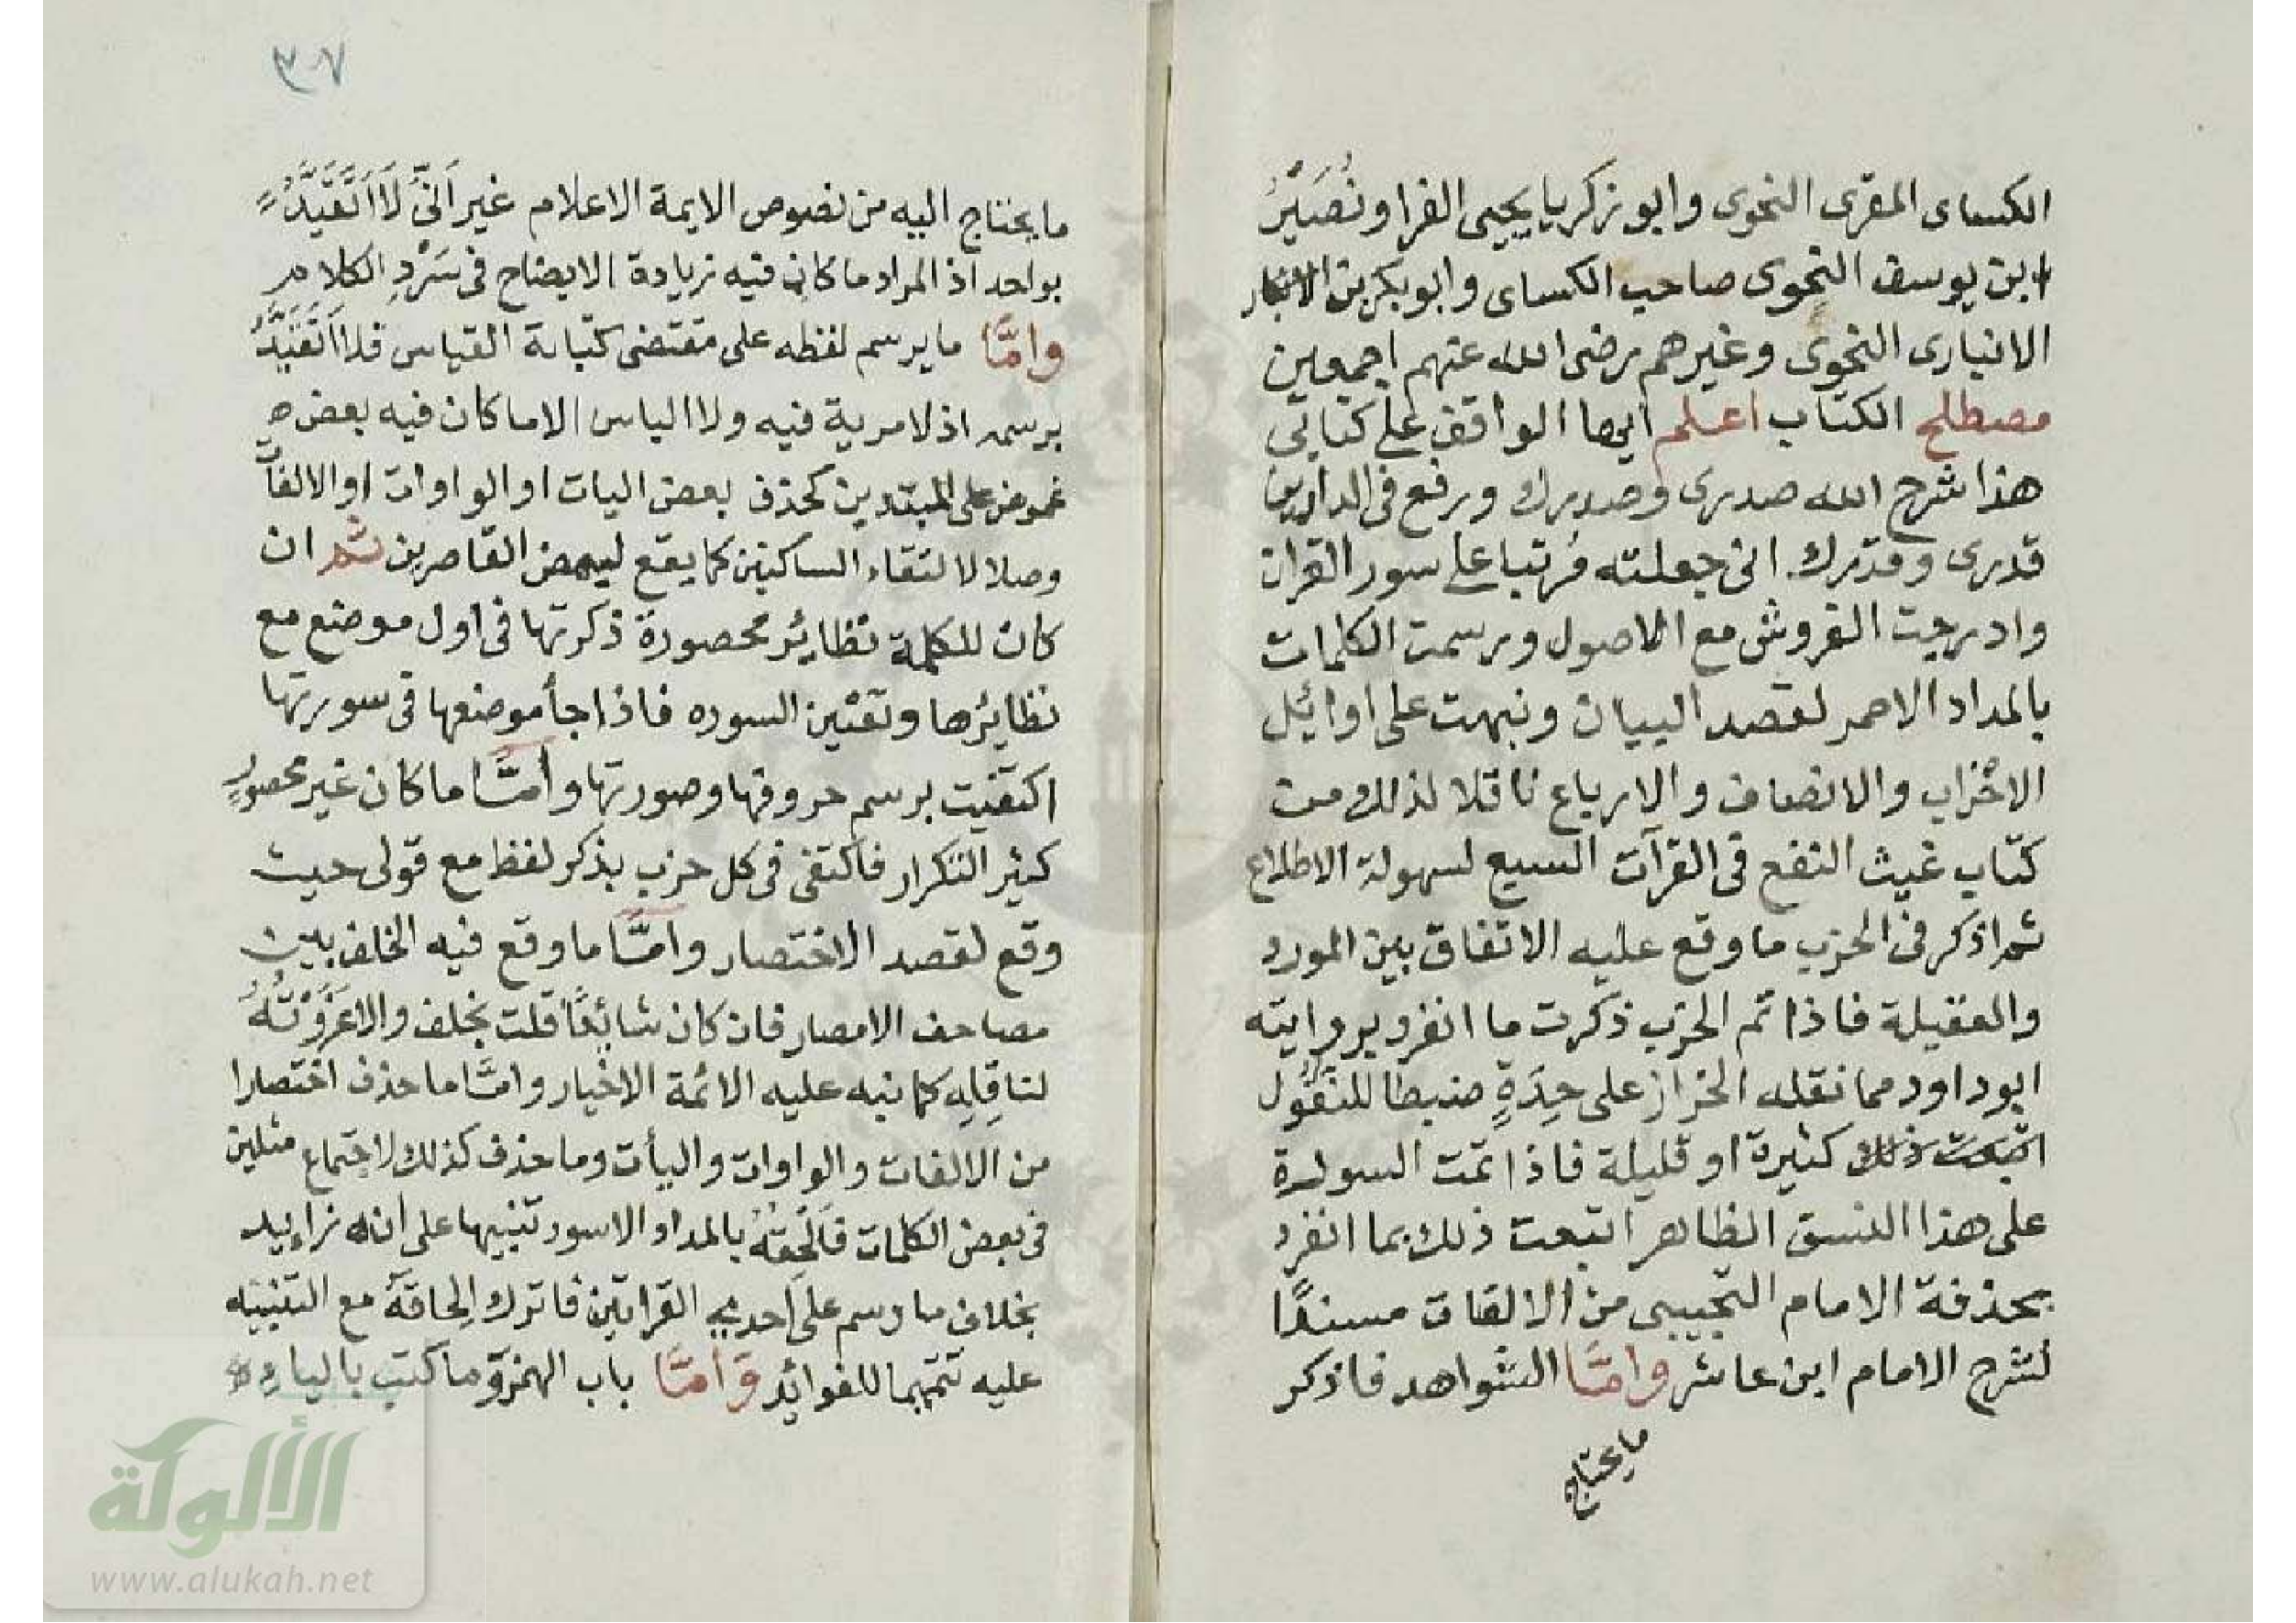 الكساى المقرى النحوى وابو زكريا يحيى الفرا ونُصَيْرُ
ابن يوسف النحوى صاحب الكساى وابوبكر بن
الانبارى النحوى وغيرهم رضى الله عنهم اجمعين
مصطلح الكتاب اعلم ايها الواقف على كتابى
هذا شرح الله صدرى وصدرك ورفع فى الدارين
قدرى وقدرك انى جعلته مُرتبا على سور القران
وادرجت الفروش مع الاصول ورسمت الكلمات
بالمداد الاحمر لقصد البيان ونبهت على اوائل
الاحزاب والانصاف والارباع ناقلا لذلك من
كتاب غيث النفع فى القرآت السبع لسهولة الاطلاع
ثم اذكر فى الحزب ما وقع عليه الاتفاق بين المورد
والعقيلة فاذا تم الحزب ذكرت ما انفرد بروايته
ابوداود مما نقله الخراز على حِدَةٍ ضبطا للنُقُول
كثيرة او قليلة فاذا تمت السورة
على هذا النسق الظاهر اتبعت ذلك بما انفرد
بحذفة الامام التجيبى من الالفات مسندًا
لشرح الامام ابن عاشر وامَّا الشواهد فاذكر
ما يحتاج
٣٠٧
ما يحتاج اليه من نصوص الايمة الاعلام غير اَنّىِ لَا اَتَقَيَّدُ
بواحد اذ المراد ما كان فيه زيادة الايضاح فى سَرْدِ الكلام
وامَّا ما يرسم لفظه على مقتضى كتابة القياس فلا اَتَقَيَّدُ
برسمه اذ لا مرية فيه ولا الباس الا ما كان فيه بعض
غموض على المبتدين كحذف بعض اليات او الواوات او الالفات
وصلا لالتقاء الساكنين كما يقع لبعض القاصرين ثم ان
كان للكلمة نظائر محصورة ذكرتها فى اول موضع مع
نظايرها وتعيين السوره فاذا جأ موضعها فى سورتها
اكتفيت برسم حروفها وصورتها وأمَّا ما كان غير محصورٍ
كثير التكرار فاكتفى فى كل حزب بذكر لفظ مع قولى حيث
وقع لقصد الاختصار وأمَّا ما وقع فيه الخلف بين
مصاحف الامصار فان كان شائعًا قلت بخلف والا عَزَوْتُهُ
لناقِلِهِ كما نبه عليه الائمة الاخيار وامَّا ما حذف اختصارا
من الالفات والواوات واليأت وما حذف كذلك لاجتماع مثلين
فى بعض الكلمات فَاُلحِقُهُ بالمداد الاسود تنبيها على انه زايد
بخلاف ما رسم على احدى القراتين فاترك اِلحاقَهُ مع التنبيه
عليه تتميما للفوائد وَأمَّا باب الهمزة وما كتب بالياء
الألوكة
www.alukah.net